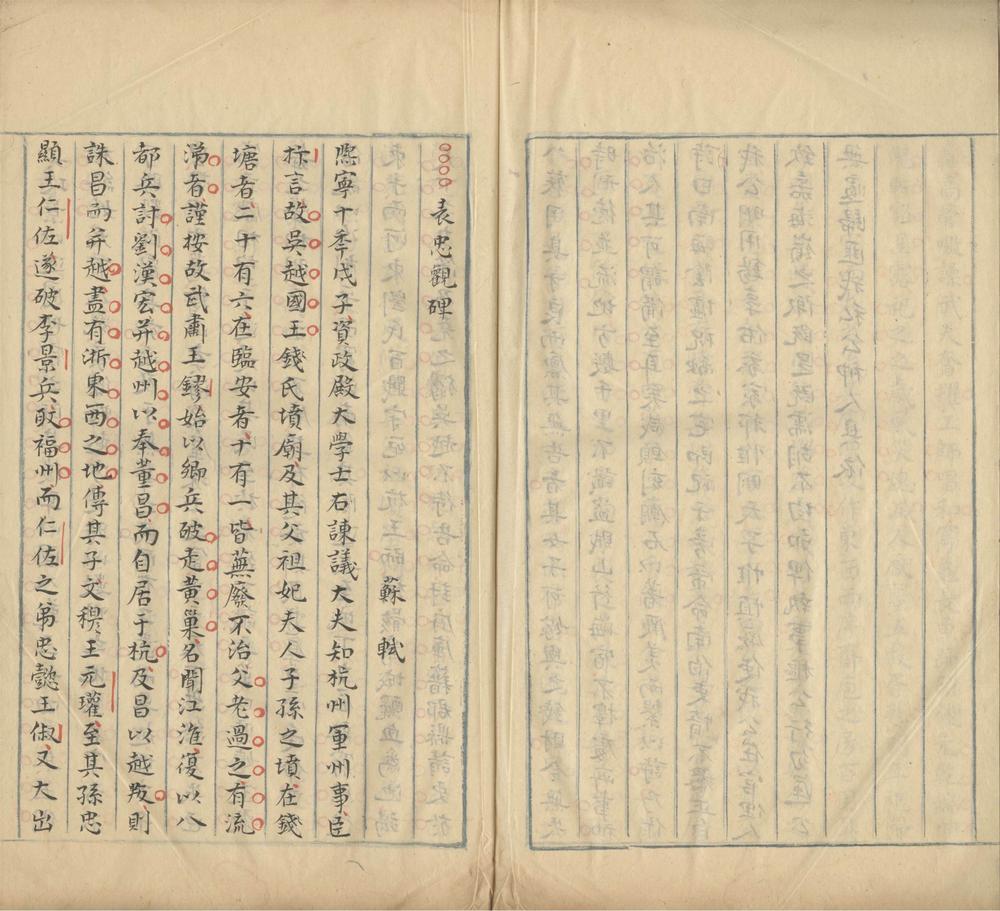 表忠觀碑
蘇軾
熈寧十年戊子資政殿大學士右諫議大夫知杭州軍州事臣
抃言故吳越國王錢氏墳廟及其父祖妃夫人子孫之墳在錢
塘者二十有六在臨安者十有一皆蕪廢不治父老過之有流
涕者謹按故武肅王鏐始以鄉兵破走黃巢名聞江淮復以八
都兵討劉漢宏并越州以奉董昌而自居于杭及昌以越叛則
誅昌而并越盡有浙東西之地傳其子文穆王元瓘至其孫忠
顯王仁佐遂破李景兵取福州而仁佐之弟忠懿王俶又大出